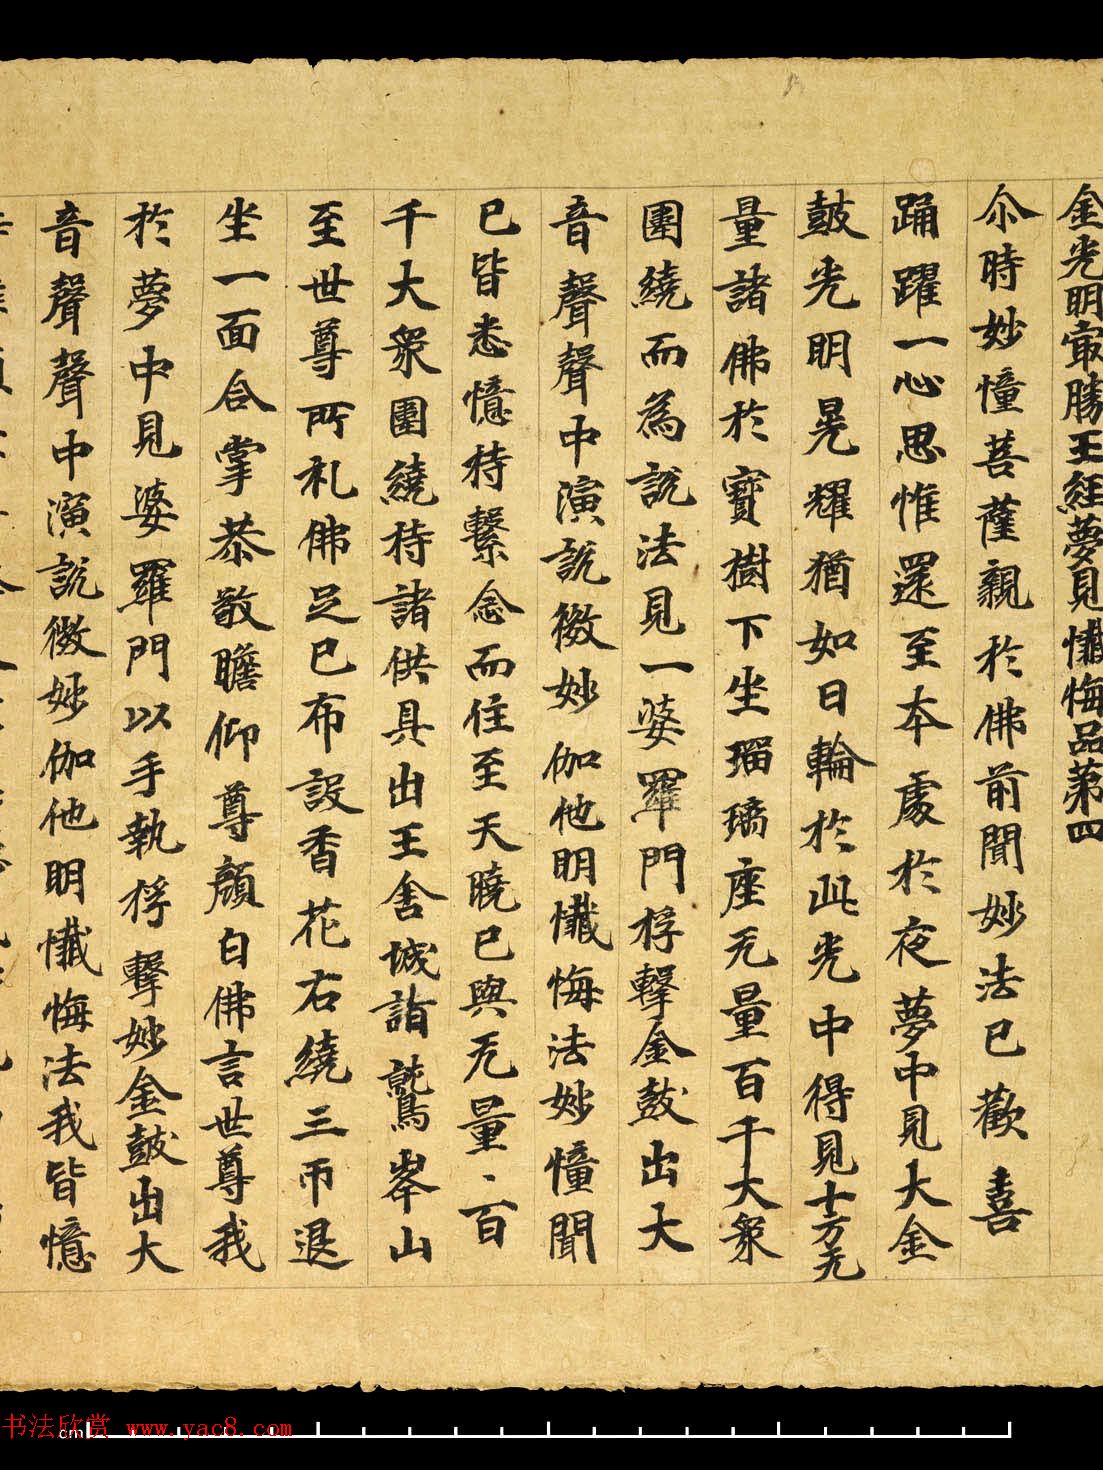 金光明冣勝王經夢見懺悔品苐四
尒時妙憧菩薩親於佛前聞妙法已歡喜
踊躍一心思惟還至本處於夜夢中見大金
鼓光明晃耀猶如日輪於此光中得見十方无
量諸佛於寶樹下坐瑠璃座无量百千大衆
圍繞而為說法見一婆羅門桴擊金鼓出大
音聲聲中演說微妙伽他明懺悔法妙憧聞
已皆悉憶持繫念而住至天曉已與无量百
千大衆圍繞持諸供具出王舍城詣鷲峯山
至世尊所礼佛足已布設香花右繞三帀退
坐一面合掌恭敬瞻仰尊顏白佛言世尊我
於夢中見婆羅門以手執桴擊妙金鼓出大
音聲聲中演說微妙伽他明懺悔法我皆憶
书法欣赏 www.yac8.com
cm